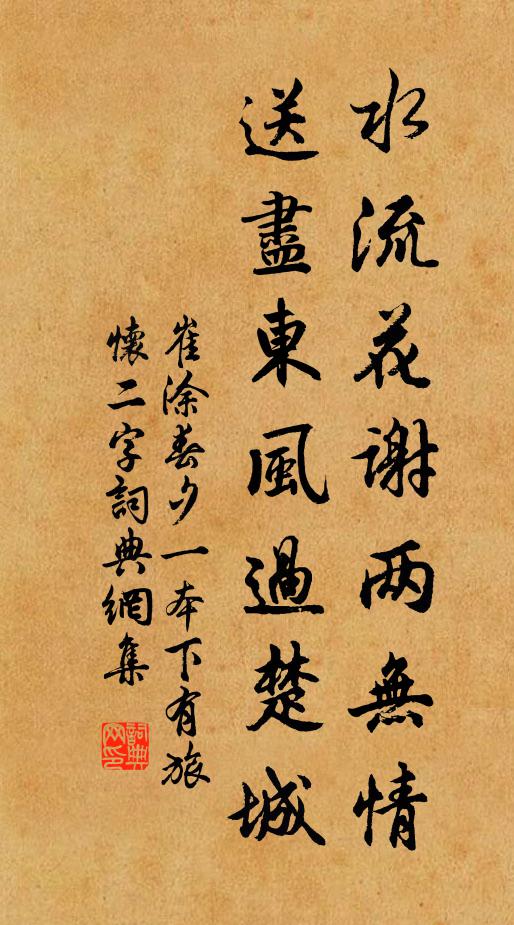 水流花谢两無情
送盡東風過楚城
崔涂春夕一本下有旅
懷二字詞典網集
詞典
網印